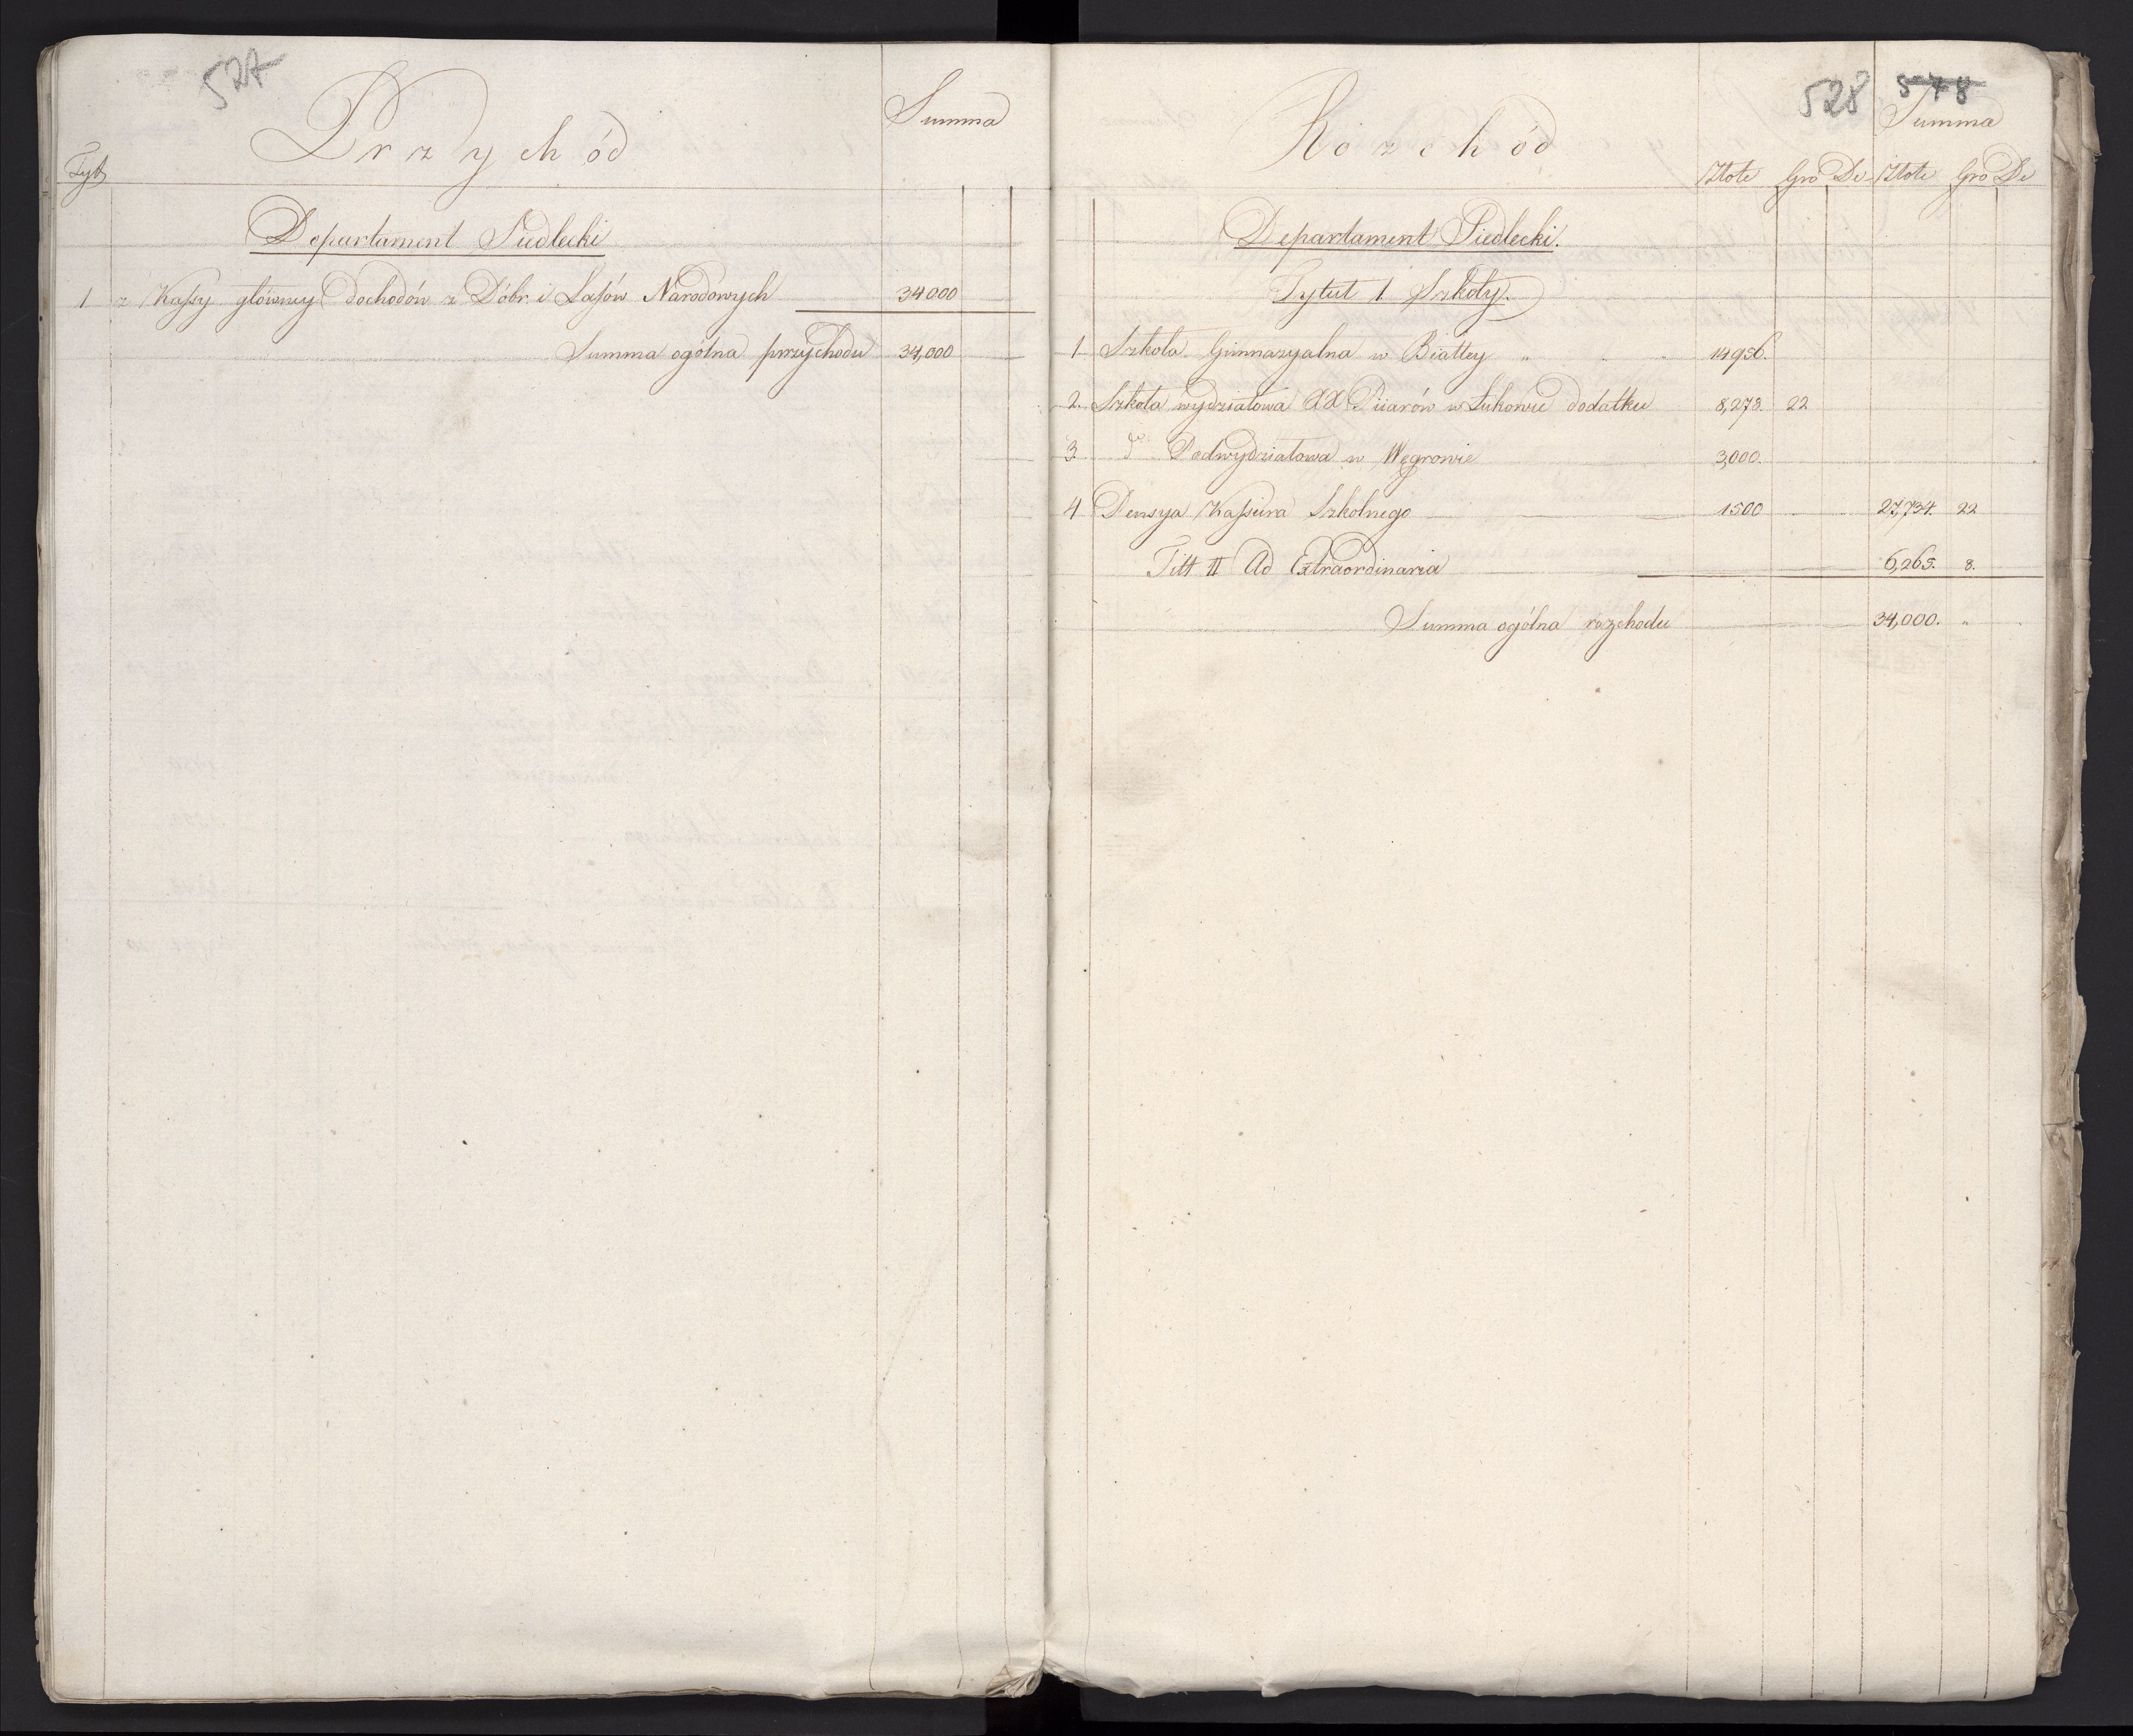 527
Przychód
Summa
Tyt
Departament Siedlecki
1 z Kassy główney dochodów z Dóbr i Lasów Narodowych 34000
Summa ogólna przychodu 34,000
528 578
Rozchód
Summa
Złote Gro De Złote Gro De
Departament Siedlecki.
Tytuł 1. Szkoły.
1. Szkoła Gimnazyalna w Białley " 14956.
2. Szkoła wydziałowa XX Piiarów w Łukowie dodatku 8,278. 22
3. Podwydziałowa w Węgrowie 3,000.
4 Pensya Kassiera Szkolnego 1500 27,734. 22
Titt II Ad Extraordinaria 6,265. 8.
Summa ogólna rozchodu 34,000. "